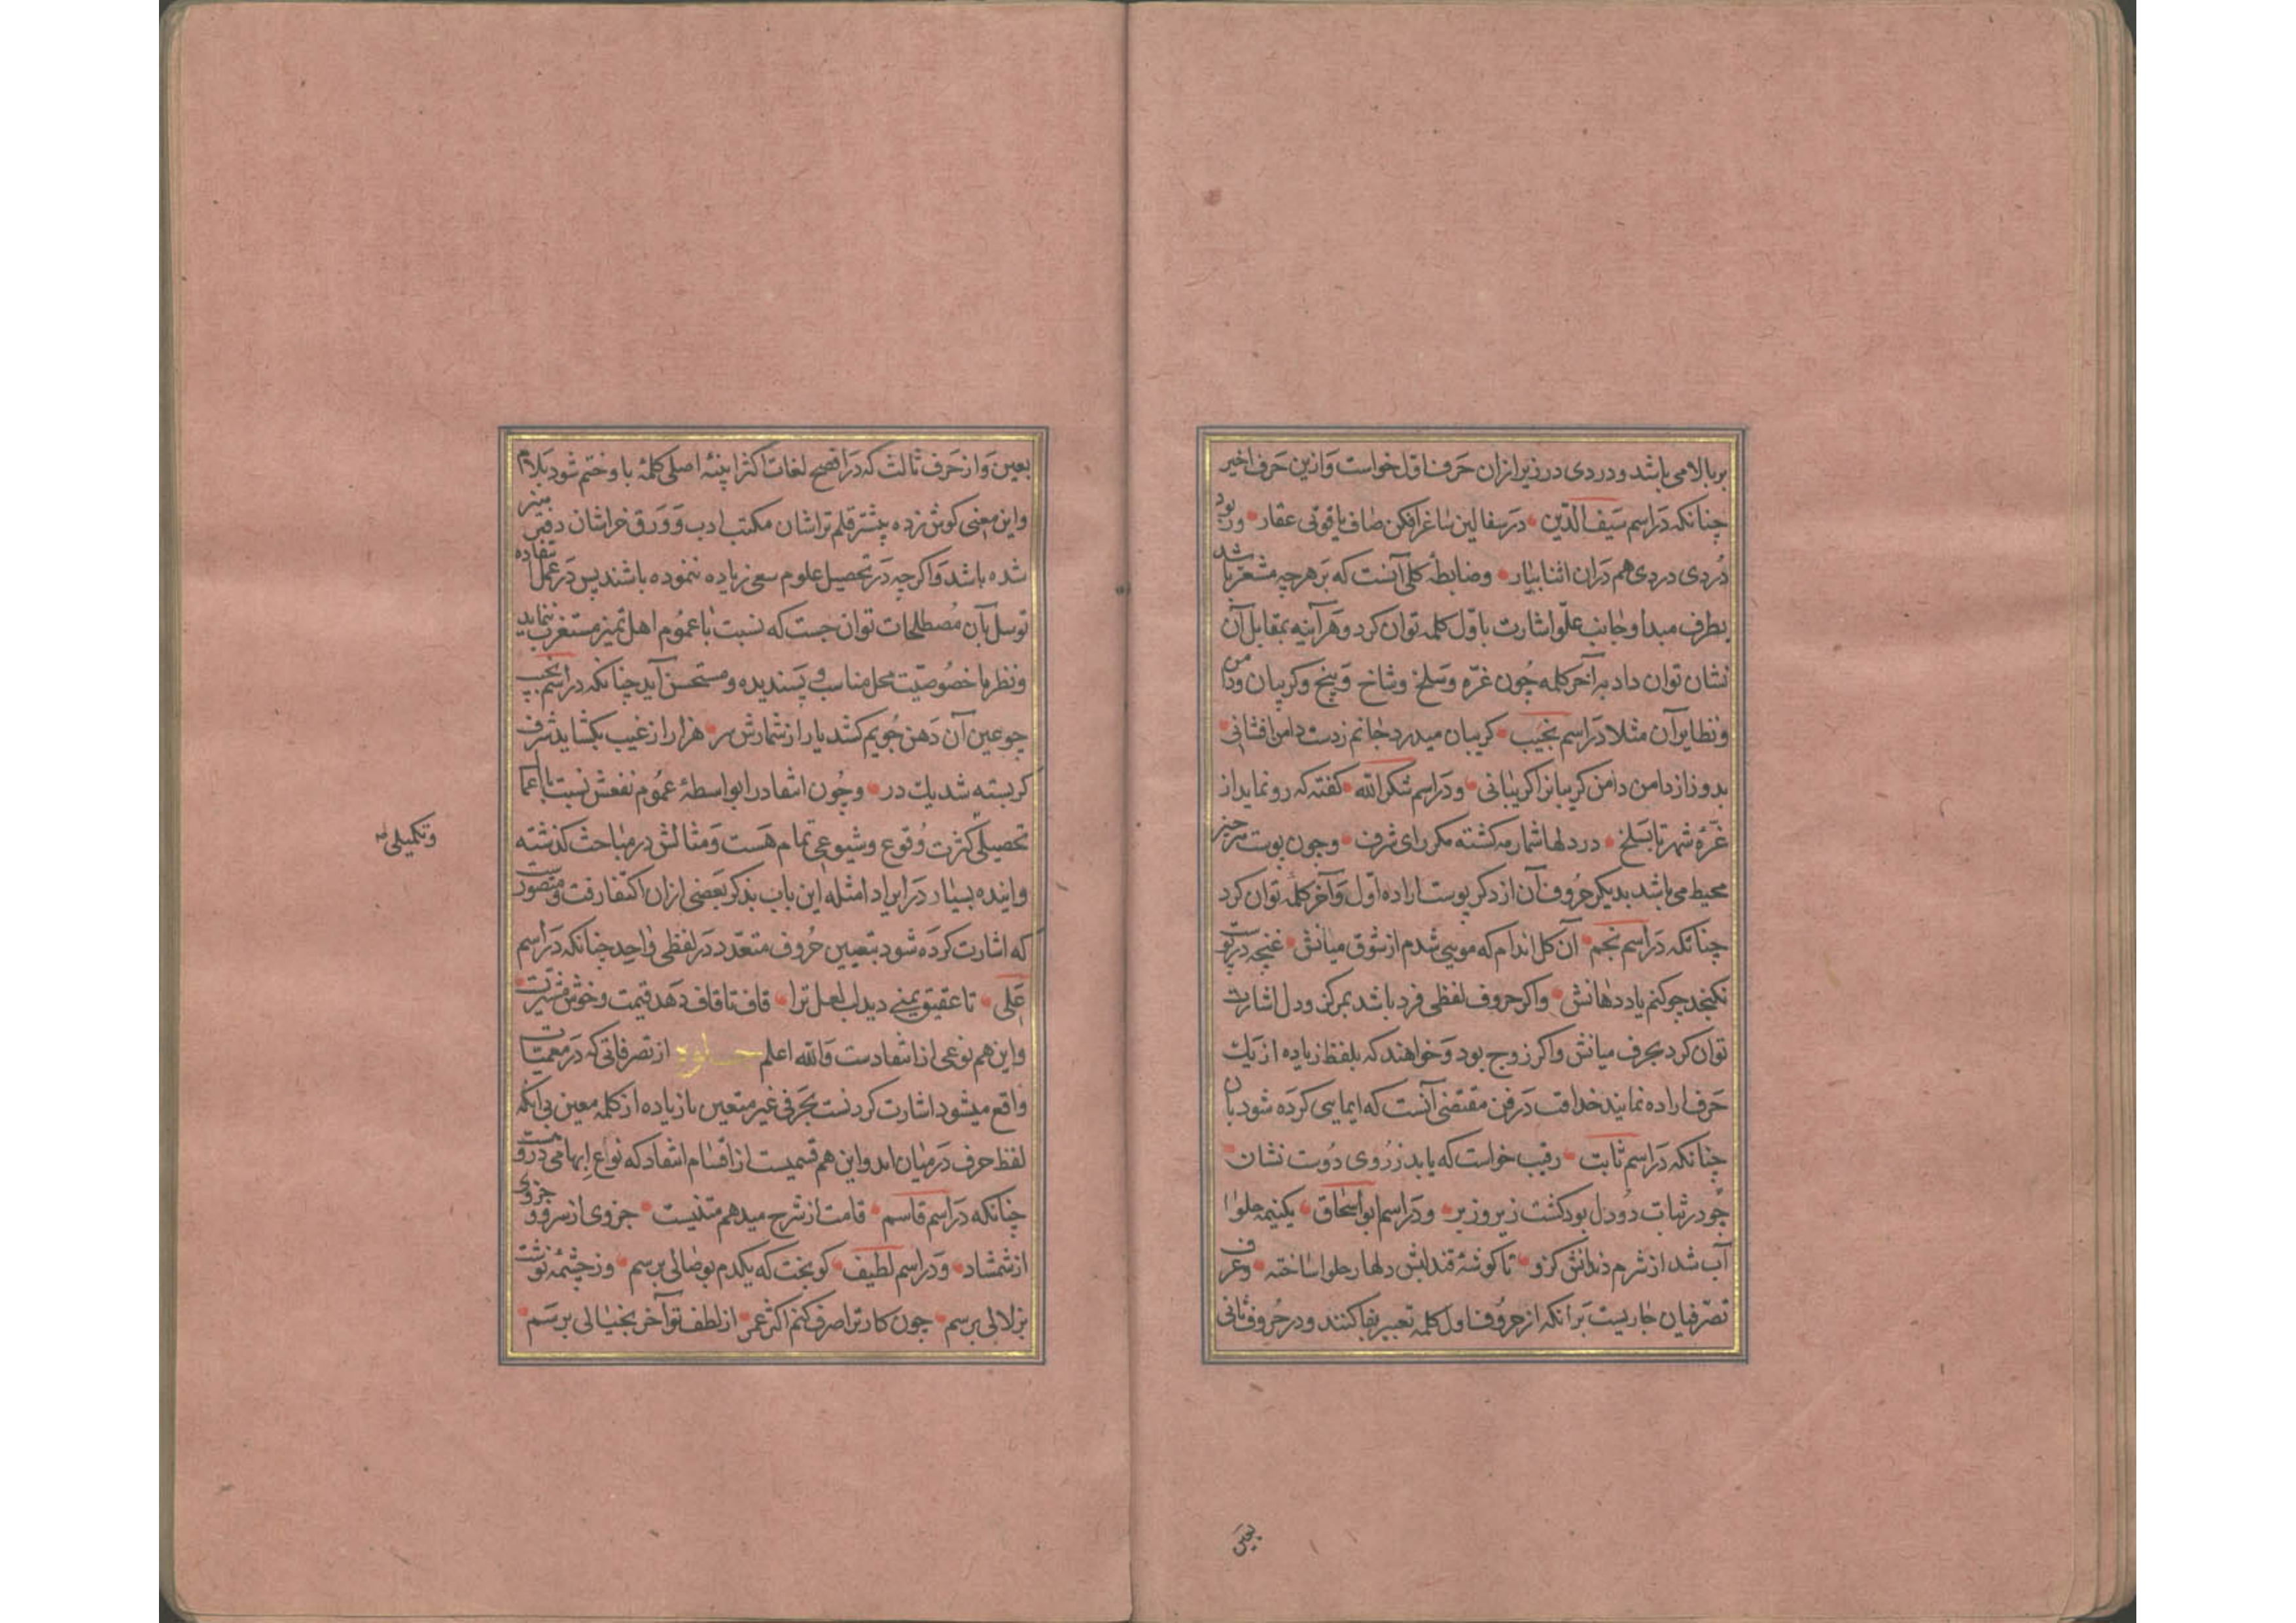 بر بالا می باشد و دردی در زیر ازان حرف اول خواست و ازین حرف اخیر
چنانکه در اسم سیف الدین در سفالین ساغر افکن صاف یاقوتی عقار ور بود
دردی دردی هم دران اثنا بیار وضابطه کلی آنست که بر هرچه مشعر باشد
بطرف مبدا و جانب علو اشارت باول کلمه توان کرد و هر آینه بمقابل آن
نشان توان داد بر آخر کلمه چون غره و سلخ و شاخ و بیخ و کریبان و دامن
و نظایر آن مثلا در اسم نجیب کریبان میدرد جانم زدست دامن افشانی
بدوزاز دامن دامن کریبانرا کریبانی و در اسم شکرالله کفته که رو نماید از
غره شهر تا بسلخ در دلها شمار مه کشته مکر رای شرف و چون پوست هر چیز
محیط می باشد بدیکر حروف آن از ذکر پوست اراده اول و آخر کلمه توان کرد
چنانکه در اسم نجم آن کل اندام که مویی شدم از شوق میانش غنچه در پوست
نکنجد چو کنم یاد دهانش و اکر حروف لفظی فرد باشد بمرکز و دل اشارت
توان کرد بحرف میانش و اکر زوج بود و خواهند که بلفظ زیاده از یک
حرف اراده نمایند حذاقت در فن مقتضی آنست که ایمایی کرده شود بآن
چنانکه در اسم ثابت رقیب خواست که یابد ز روی دوست نشان
چو در ثبات دودل بود کشت زیر و زبر و در اسم ابو اسحاق یکنیمه حلوا
آب شد از شرم دندانش کزو تا کوشه قند لبش دلها ز حلوا ساخته و عرف
تصرفیان جاریست بر آنکه از حروف اول کلمه تعبیر بفا کنند و در حروف ثانی
بعین
بعین و از حرف ثالث که در افصح لغات اکثر ابنیه اصلی کلمه باو ختم شود بلام
و این معنی کوش زده بیشتر قلم تراشان مکتب ادب و ورق خراشان دفتر
شده باشد و اکرچه در تحصیل علوم سعی زیاده ننموده باشند پس در عمل
توسل بآن مصطلحات توان جست که نسبت با عموم اهل تمیز مستغرب ننماید
و نظر با خصوصیت محل مناسب و پسندیده و مستحسن آید چنانکه در اسم نجیب
چو عین آن دهن جویم کشد یار از شمارش سر هزار از غیب بکشاید شرف
کر بسته شد یک در و چون انتقاد را بواسطه عموم نفعش نسبت با اعمال
تحصیلی کثرت وقوع و شیوعی تمام هست و مثالش در مباحث کذشته
و تکمیلی
و اینده بسیار در ایراد امثله این باب بذکر بعضی ازان اکتفا رفت و متصورست
که اشارت کرده شود بتعیین حروف متعدد در لفظی واحد چنانکه در اسم
علی تا عقیق یمنی دید لب لعل ترا قاف تا قاف دهد قیمت و خوش
و این هم نوعی از انتقادست و الله اعلم جلوه از تصرفاتی که در معمیات
واقع میشود اشارت کردنست بحرفی غیر متعین یا زیاده از کلمه معین بی آنکه
لفظ حرف در میان اید و این هم قسمیست از اقسام انتقاد که نواع ابهامی دروست
چنانکه در اسم قاسم قامت از شرح میدهم متنیست جزوی از سرو و جزوی
از شمشاد و در اسم لطیف کو بخت که یکدم بوصالی برسم وز چشمه نوشت
بزلالی برسم چون کار ترا صرف کنم اکثر عمر از لطف تو آخر بخیالی برسم